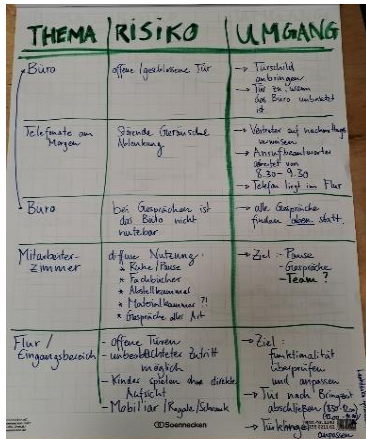 THEMA RISIKO UMGANG
Büro
offene / geschlossene Tür
→ Türschild
anbringen
→ Tür zu, wenn
das Büro unbesetzt
ist
Telefonate am
Morgen
Störende Geräusche
Ablenkung
→ Vertreter auf nachmittags
verweisen
→ Anrufbeantworter
arbeitet von
8.30 - 9.30
→ Telefon liegt im Flur
Büro
bei Gesprächen ist
das Büro nicht
nutzbar
→ alle Gespräche
finden oben statt.
Mitarbeiter-
zimmer
diffuse Nutzung:
* Ruhe/Pause
* Fachbücher
* Abstellkammer
* Materialkammer ?!
* Gespräche aller Art
→ Ziel: - Pause
- Gespräche
- Team?
Flur /
Eingangsbereich
- offene Türen
- unbeobachteter Zutritt
möglich
- Kinder spielen ohne direkte
Aufsicht
- Mobiliar / Regale / Schrank
→ Ziel:
Funktionalität
überprüfen
und anpassen
→ Tür nach Bringzeit
abschließen
→ Türklingel
anpassen
Soennecken